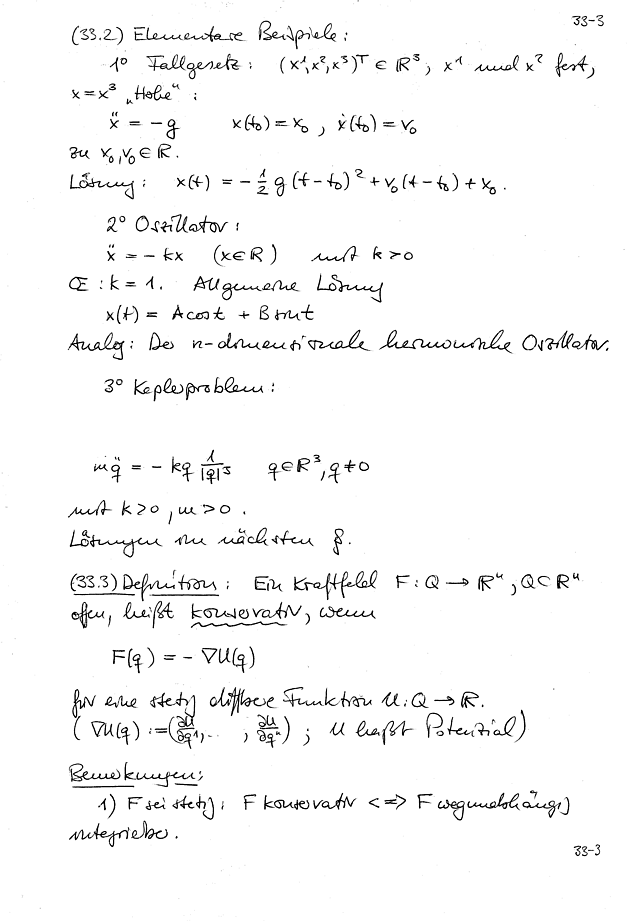 33-3
(33.2) Elementare Beispiele:
1° Fallgesetz: (x¹,x²,x³)ᵀ ∈ ℝ³, x¹ und x² fest,
x=x³ „Höhe“:
ẍ = −g x(t₀) = x₀, ẋ(t₀) = v₀
zu x₀,v₀ ∈ ℝ.
Lösung: x(t) = −½ g(t−t₀)² + v₀(t−t₀) + x₀.
2° Oszillator:
ẍ = −kx (x∈ℝ) mit k>0
Œ: k=1. Allgemeine Lösung
x(t) = A cos t + B sin t
Analog: Der n-dimensionale harmonische Oszillator.
3° Keplerproblem:
mq̈ = −kq 1/|q|³ q∈ℝ³, q≠0
mit k>0, m>0.
Lösungen im nächsten §.
(33.3) Definition: Ein Kraftfeld F: Q → ℝⁿ, Q⊂ℝⁿ
offen, heißt konservativ, wenn
F(q) = −∇U(q)
für eine stetig diffbare Funktion U: Q → ℝ.
(∇U(q) := (∂U/∂q¹, ..., ∂U/∂qⁿ); U heißt Potenzial)
Bemerkungen:
1) F sei stetig: F konservativ <=> F wegunabhängig
integrierbar.
33-3